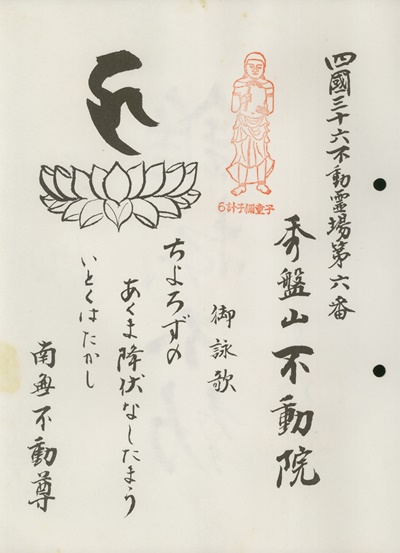 四國三十六不動霊場第六番
秀盤山不動院
6計子儞童子
御詠歌
ちよろずの
あくま降伏なしたまう
いとくはたかし
南無不動尊